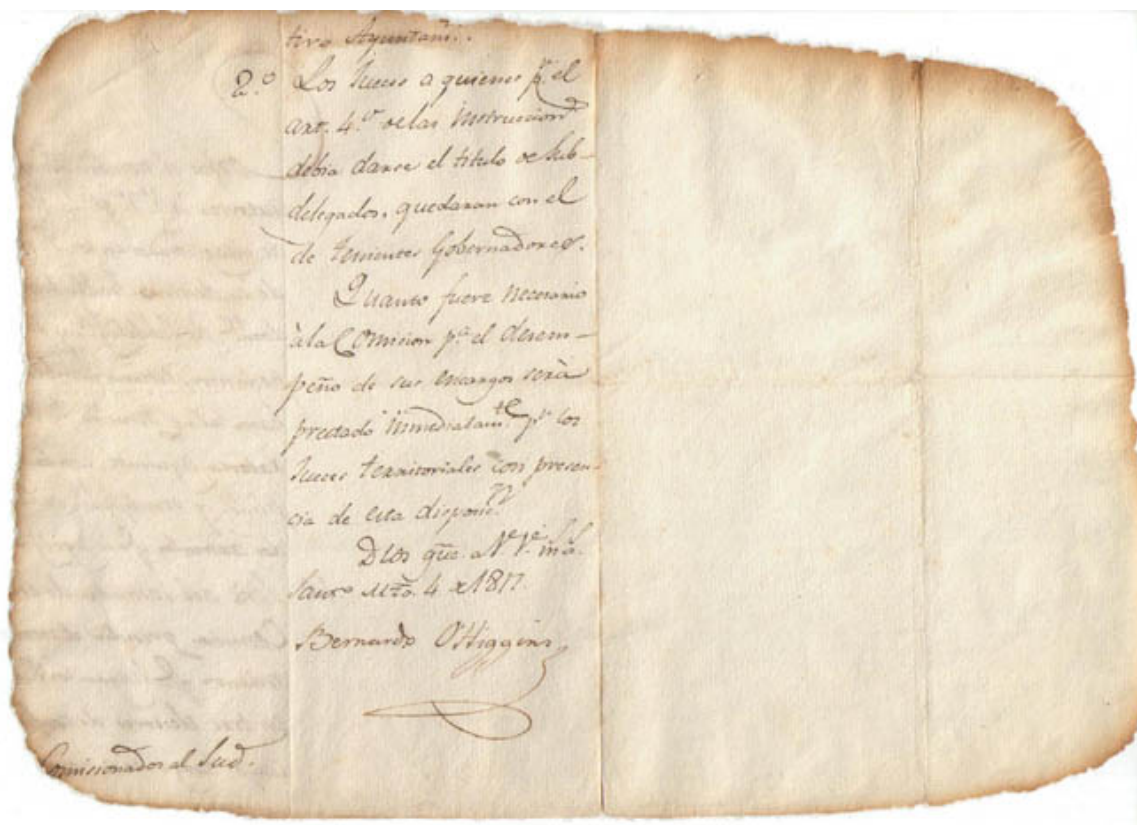 tivo Ayuntam.
2.º Los Jueces a quienes p.r el
art. 4.º de las Instruccion.s
debia darse el titulo de Sub-
delegados, quedaran con el
de Tenientes Gobernadores.
Quanto fuere necesario
à la Comision p.a el desem-
peño de sus encargos serà
prestado inmediatam.te p.r los
Jueces territoriales con presen-
cia de esta disposic.n
Dios gũe. a V.
Sant.o Mzo. 4 de 1817.
Bernardo O'Higgins
Comisionados al Sud.